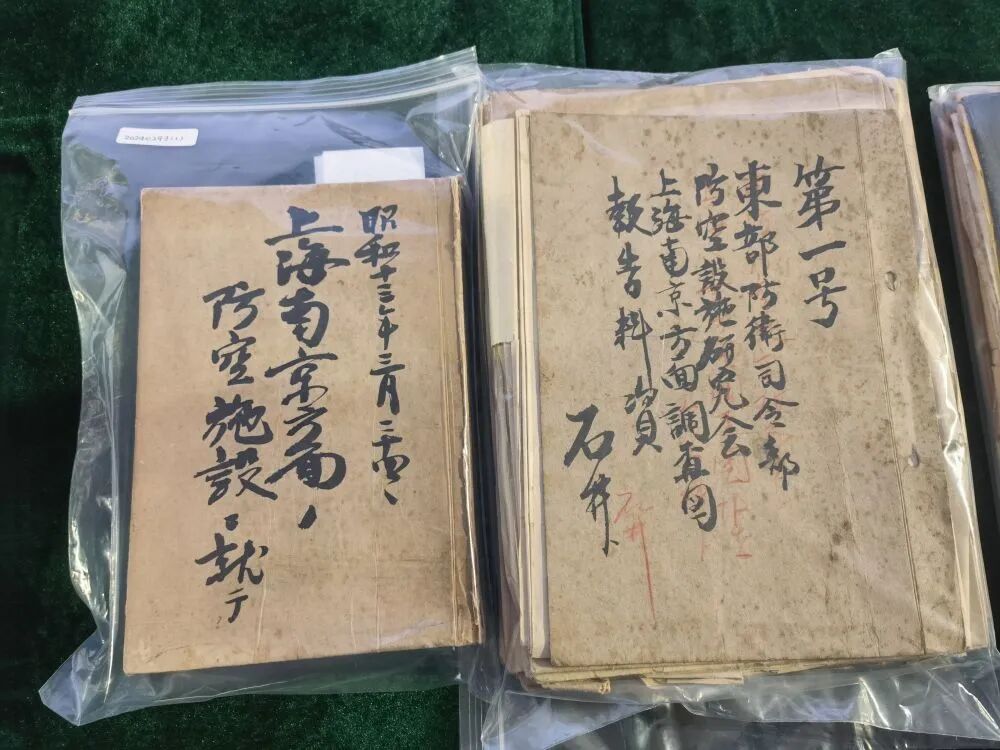 昭和十三年三月
上海南京方面ノ
防空施設ニ就テ
第一号
東部防衛司令部
防空設施研究会
上海南京方面調査団
報告料資
石井
石井